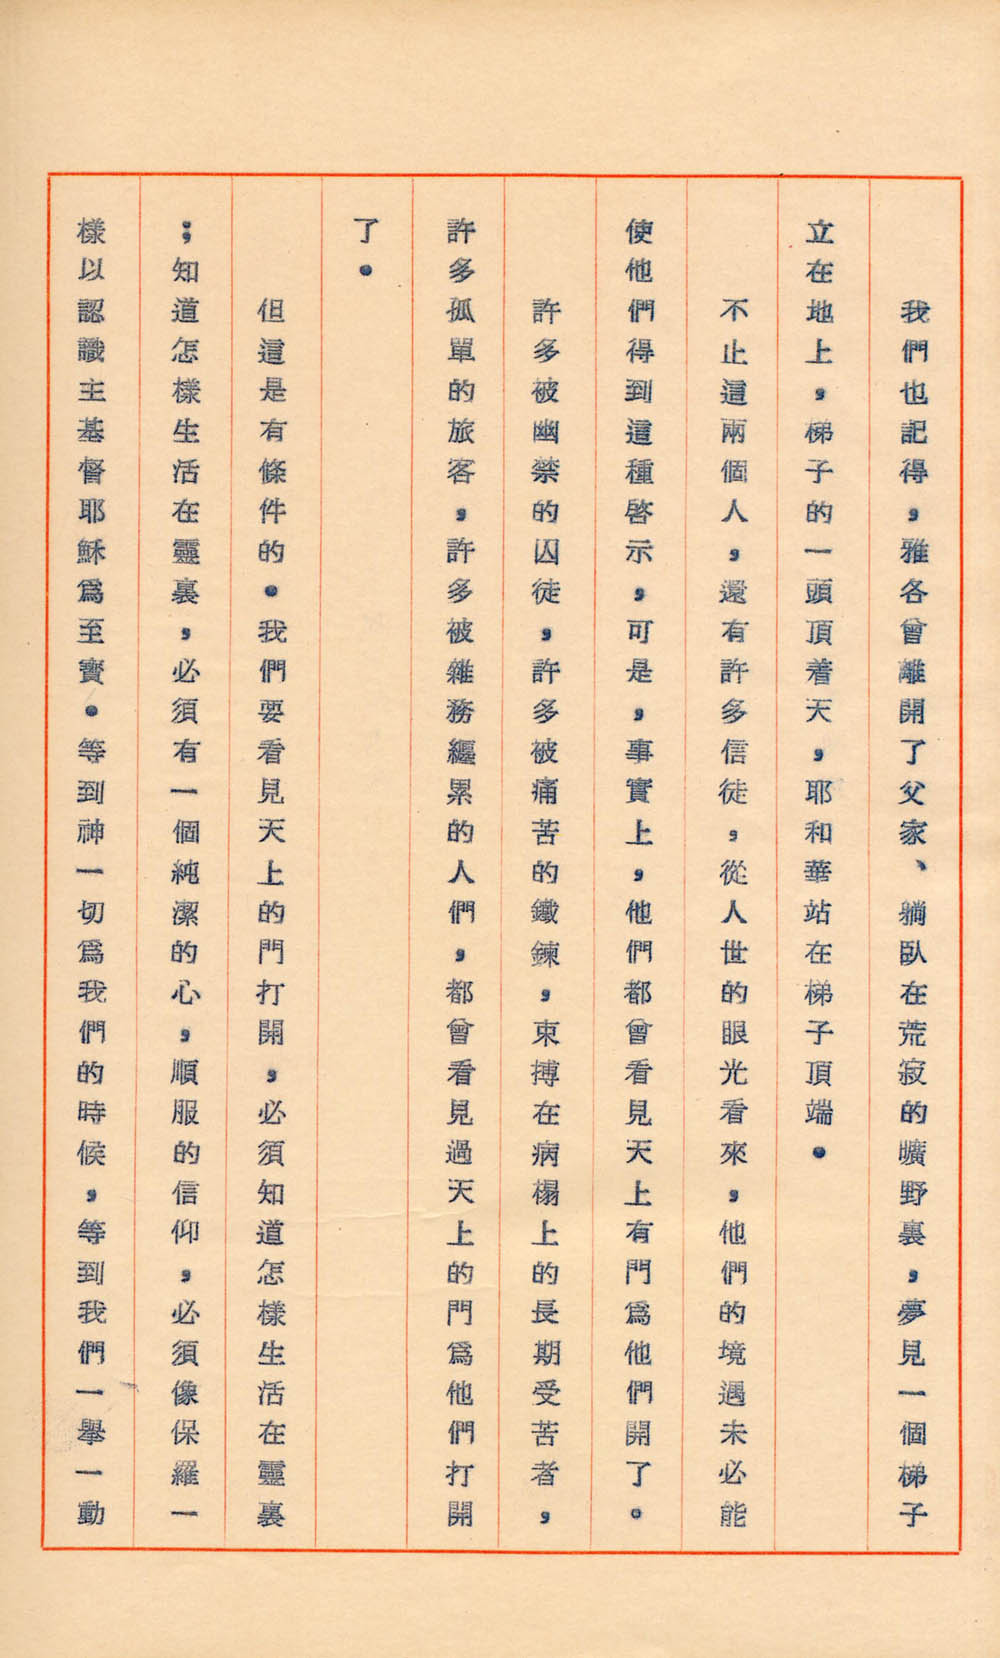 我們也記得，雅各曾離開了父家、躺臥在荒寂的曠野裏，夢見一個梯子
立在地上，梯子的一頭頂着天，耶和華站在梯子頂端。
不止這兩個人，還有許多信徒，從人世的眼光看來，他們的境遇未必能
使他們得到這種啓示，可是，事實上，他們都曾看見天上有門爲他們開了。
許多被幽禁的囚徒，許多被痛苦的鐵鍊，束搏在病榻上的長期受苦者，
許多孤單的旅客，許多被雜務纏累的人們，都曾看見過天上的門爲他們打開
了。
但這是有條件的。我們要看見天上的門打開，必須知道怎樣生活在靈裏
；知道怎樣生活在靈裏，必須有一個純潔的心，順服的信仰，必須像保羅一
樣以認識主基督耶穌爲至寶。等到神一切爲我們的時候，等到我們一舉一動